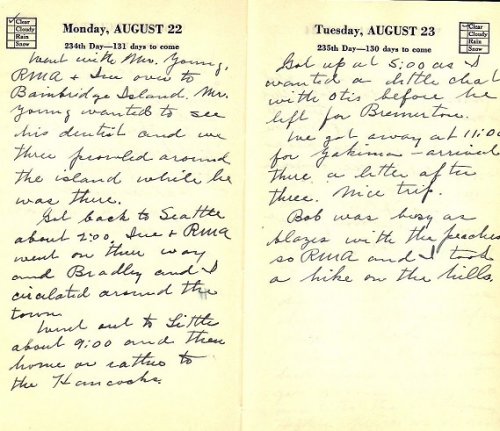 Clear
Cloudy
Rain
Snow
Monday, AUGUST 22
234th Day—131 days to come
Went with Mr. Young,
RMA + Sue over to
Bainbridge Island. Mr.
Young wanted to see
his dentist and we
three prowled around
the island while he
was there.
Got back to Seattle
about 2:00. Sue + RMA
went on their way
and Bradley and I
circulated around the
town.
Went out to
about 9:00 and then
home or rather to
the Hancocks.
Tuesday, AUGUST 23
235th Day—130 days to come
Clear
Cloudy
Rain
Snow
Got up at 5:00 as I
wanted a little chat
with Otis before he
left for Bremerton.
We got away at 11:00
for Yakima – arrived
there a little after
three. Nice trip.
Bob was busy as
blazes with the peaches
so RMA and I took
a hike on the hills.